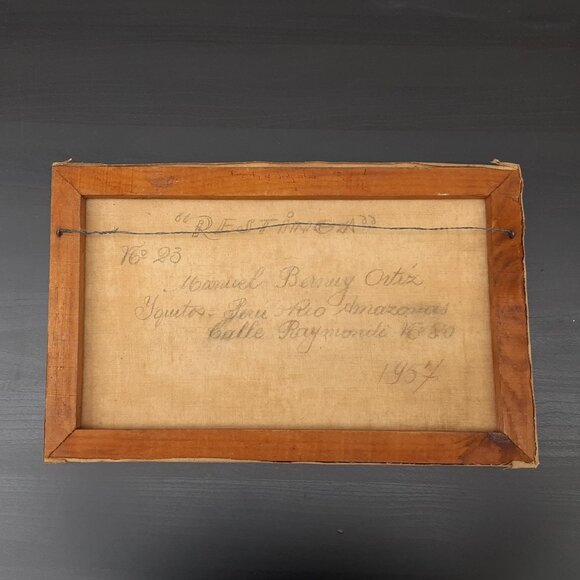 “RESTINGA”
No 23
Manuel Bernuy Ortiz
Yquitos - Peru Rio Amazonas
Calle Raymondi No 80
1957